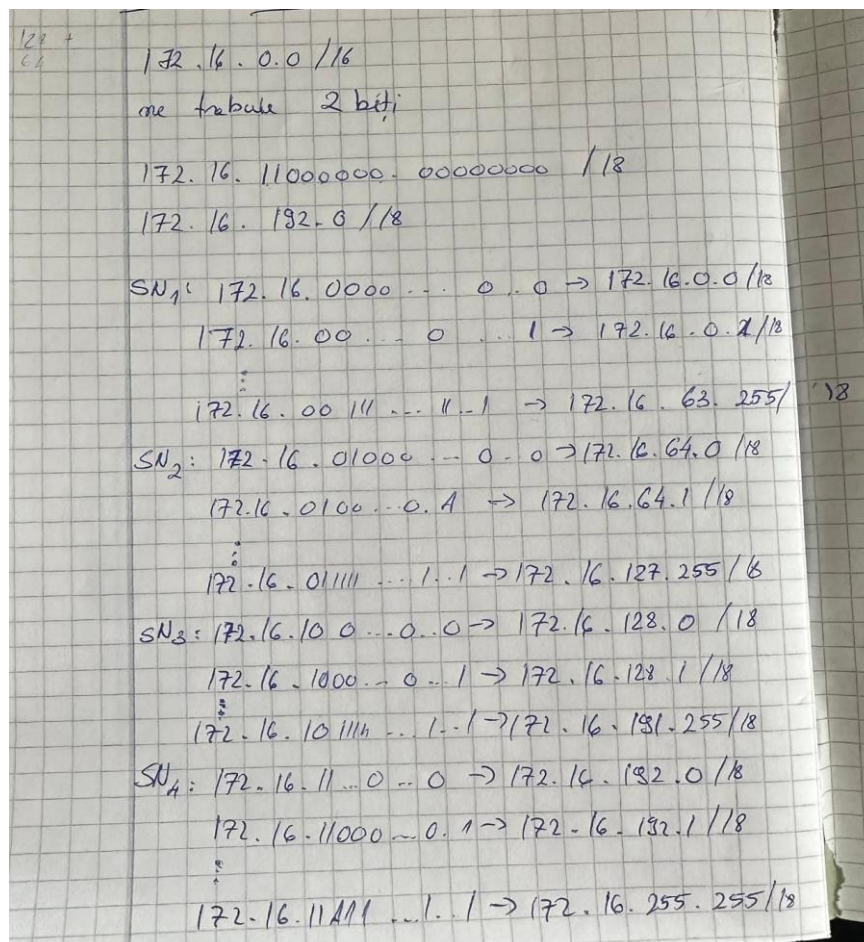 128 +
64
172.16.0.0/16
ne trebuie 2 biți
172.16.11000000.00000000 /18
172.16.192.0//18
SN1: 172.16.0000 ... 0..0 → 172.16.0.0/18
172.16.00 ... 0 ... 1 → 172.16.0.1/18
⋮
172.16.00 111 ... 11..1 → 172.16.63.255/18
SN2: 172.16.01000 ... 0.0 → 172.16.64.0/18
172.16.0100...0.1 → 172.16.64.1//18
⋮
172.16.011111 ... 1..1 → 172.16.127.255/18
SN3: 172.16.100...0..0 → 172.16.128.0/18
172.16.1000...0...1 → 172.16.128.1//18
⋮
172.16.101111 ... 1..1 → 172.16.191.255/18
SN4: 172.16.11...0..0 → 172.16.192.0/18
172.16.11000...0.1 → 172.16.192.1//18
⋮
172.16.11111 ...1..1 → 172.16.255.255/18